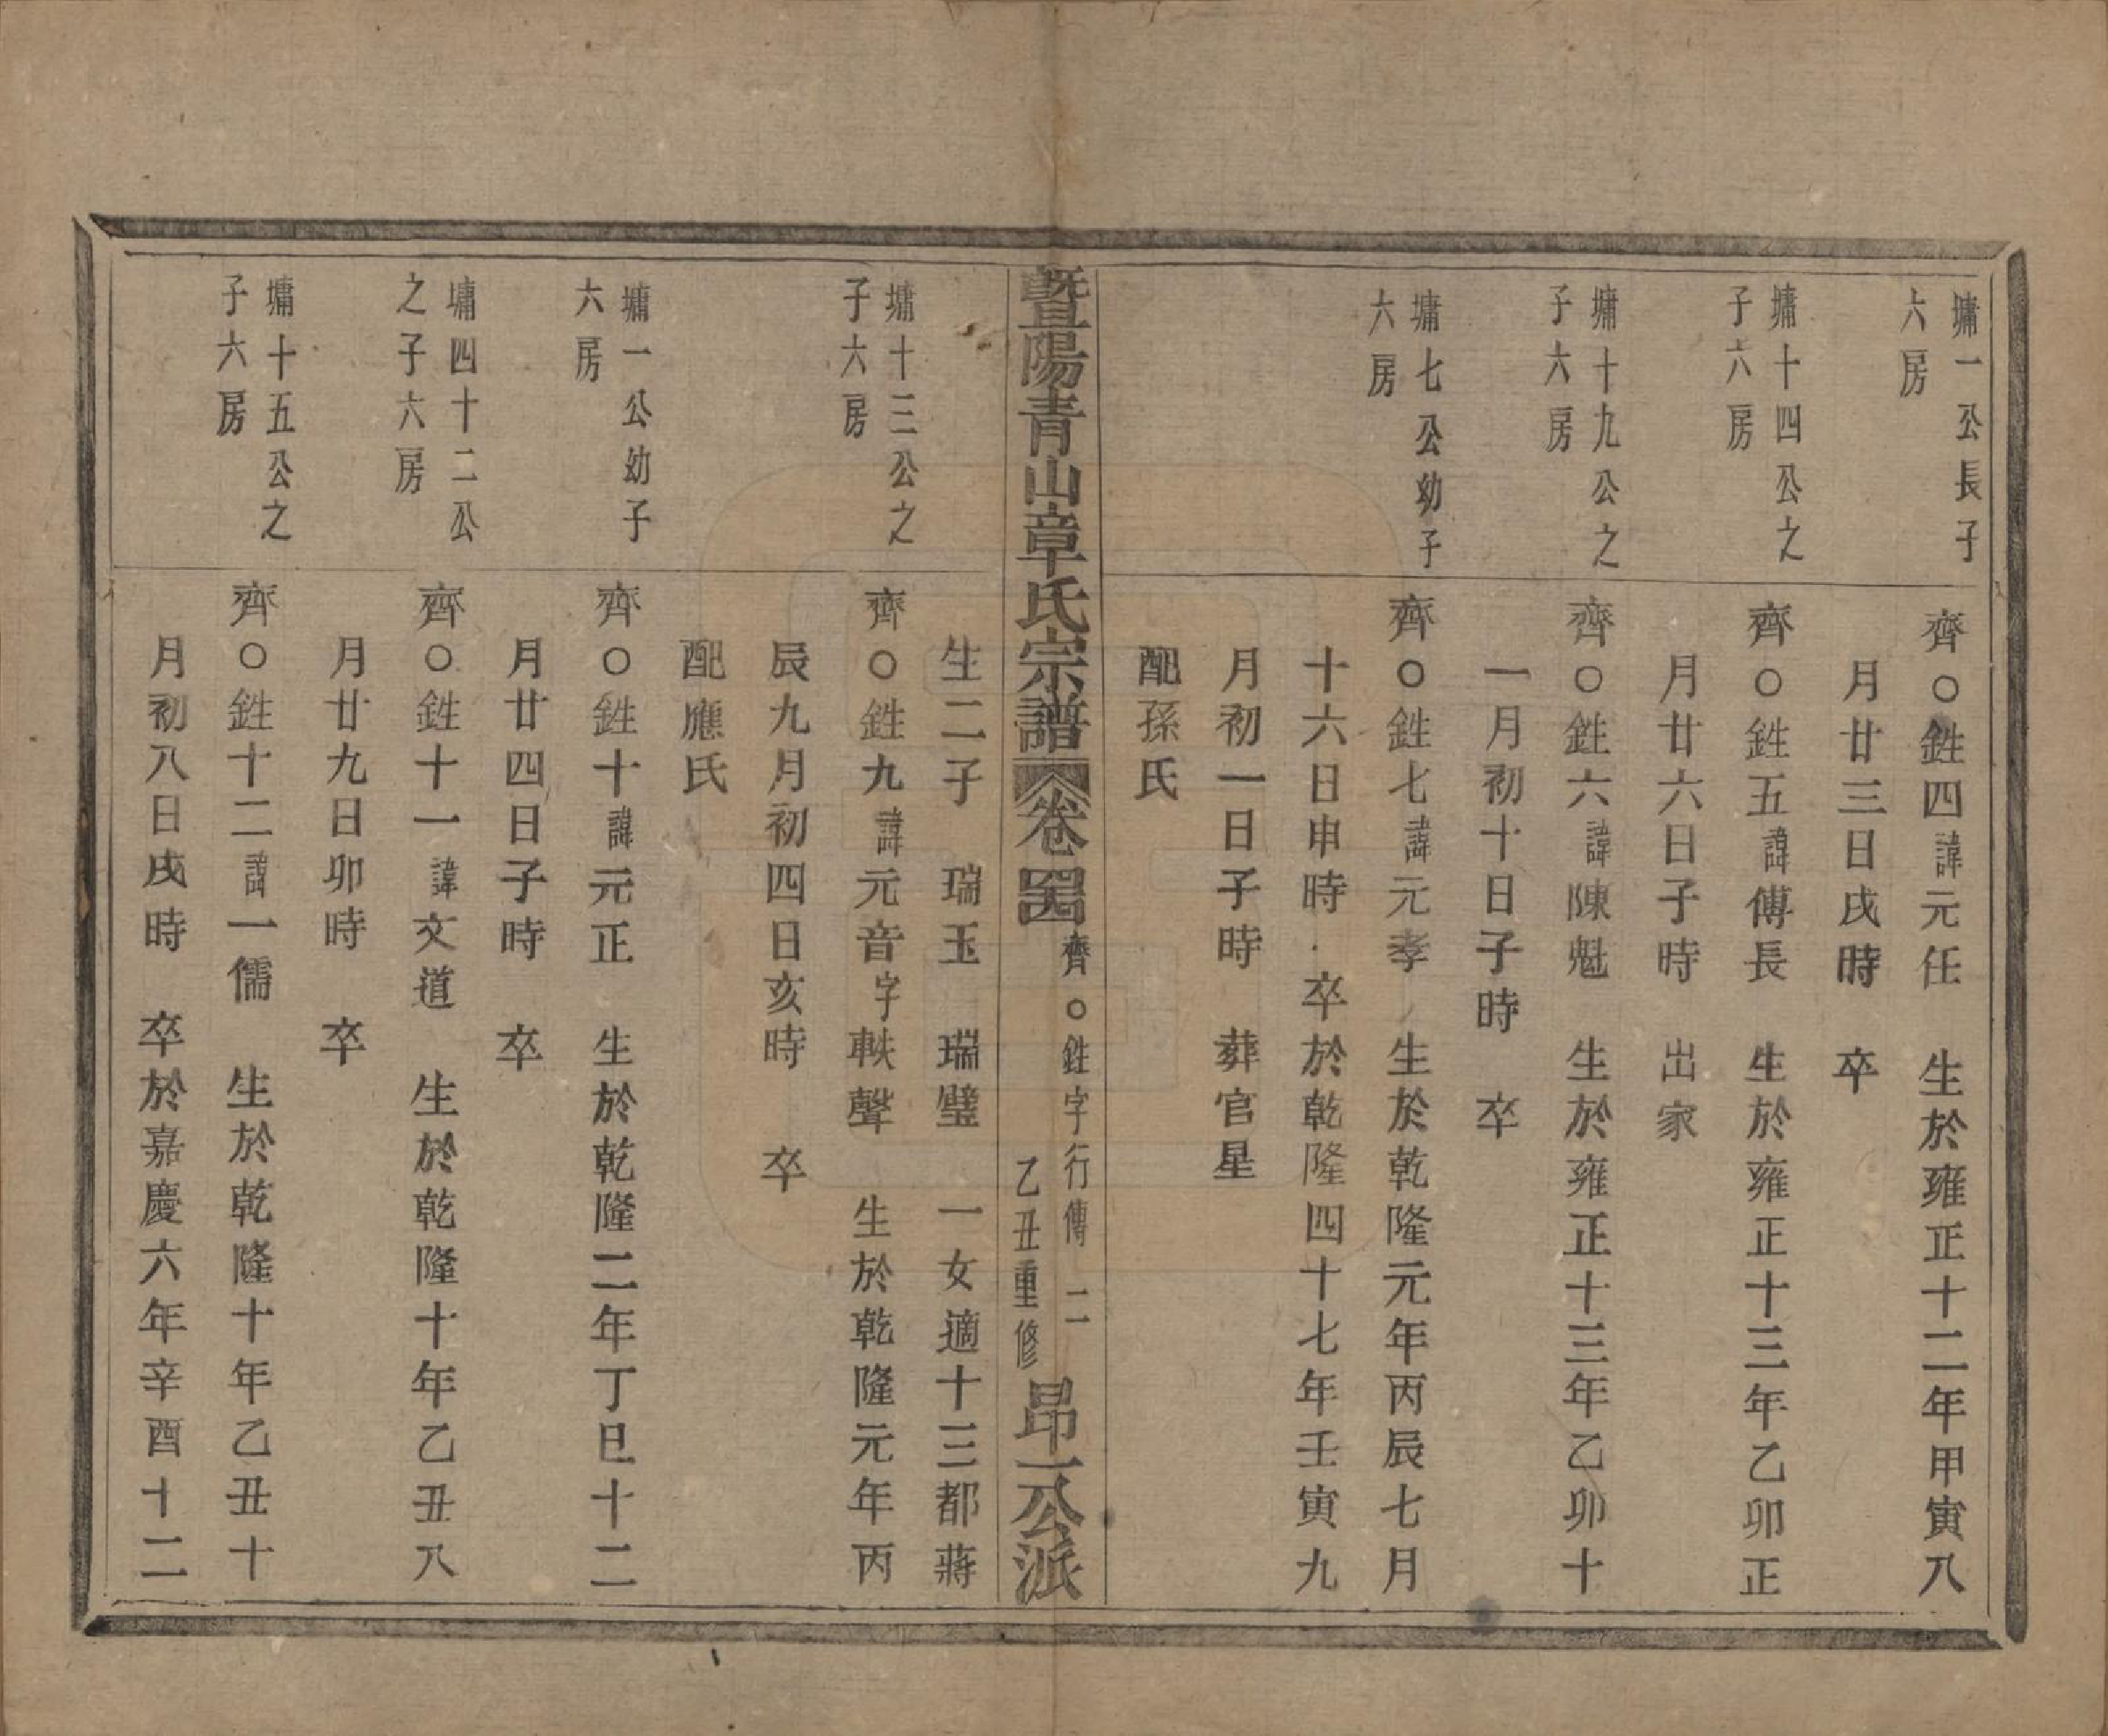 墉一公長子
六房
齊○鉎四諱元任　生於雍正十二年甲寅八
月廿三日戌時　卒
墉十四公之
子六房
齊○鉎五諱傳長　生於雍正十三年乙卯正
月廿六日子時　出家
墉十九公之
子六房
齊○鉎六諱陳魁　生於雍正十三年乙卯十
一月初十日子時　卒
墉七公幼子
六房
齊○鉎七諱元孝　生於乾隆元年丙辰七月
十六日申時　卒於乾隆四十七年壬寅九
月初一日子時　葬官星
配孫氏
暨陽青山章氏宗譜　卷四　齊○鉎字行傳　二　乙丑重修　昂一公派
生二子　瑞玉　瑞璧　一女適十三都蔣
墉十三公之
子六房
齊○鉎九諱元音字軼聲　生於乾隆元年丙
辰九月初四日亥時　卒
配應氏
墉一公幼子
六房
齊○鉎十諱元正　生於乾隆二年丁巳十二
月廿四日子時　卒
墉四十二公
之子六房
齊○鉎十一諱文道　生於乾隆十年乙丑八
月廿九日卯時　卒
墉十五公之
子六房
齊○鉎十二諱一儒　生於乾隆十年乙丑十
月初八日戌時　卒於嘉慶六年辛酉十二